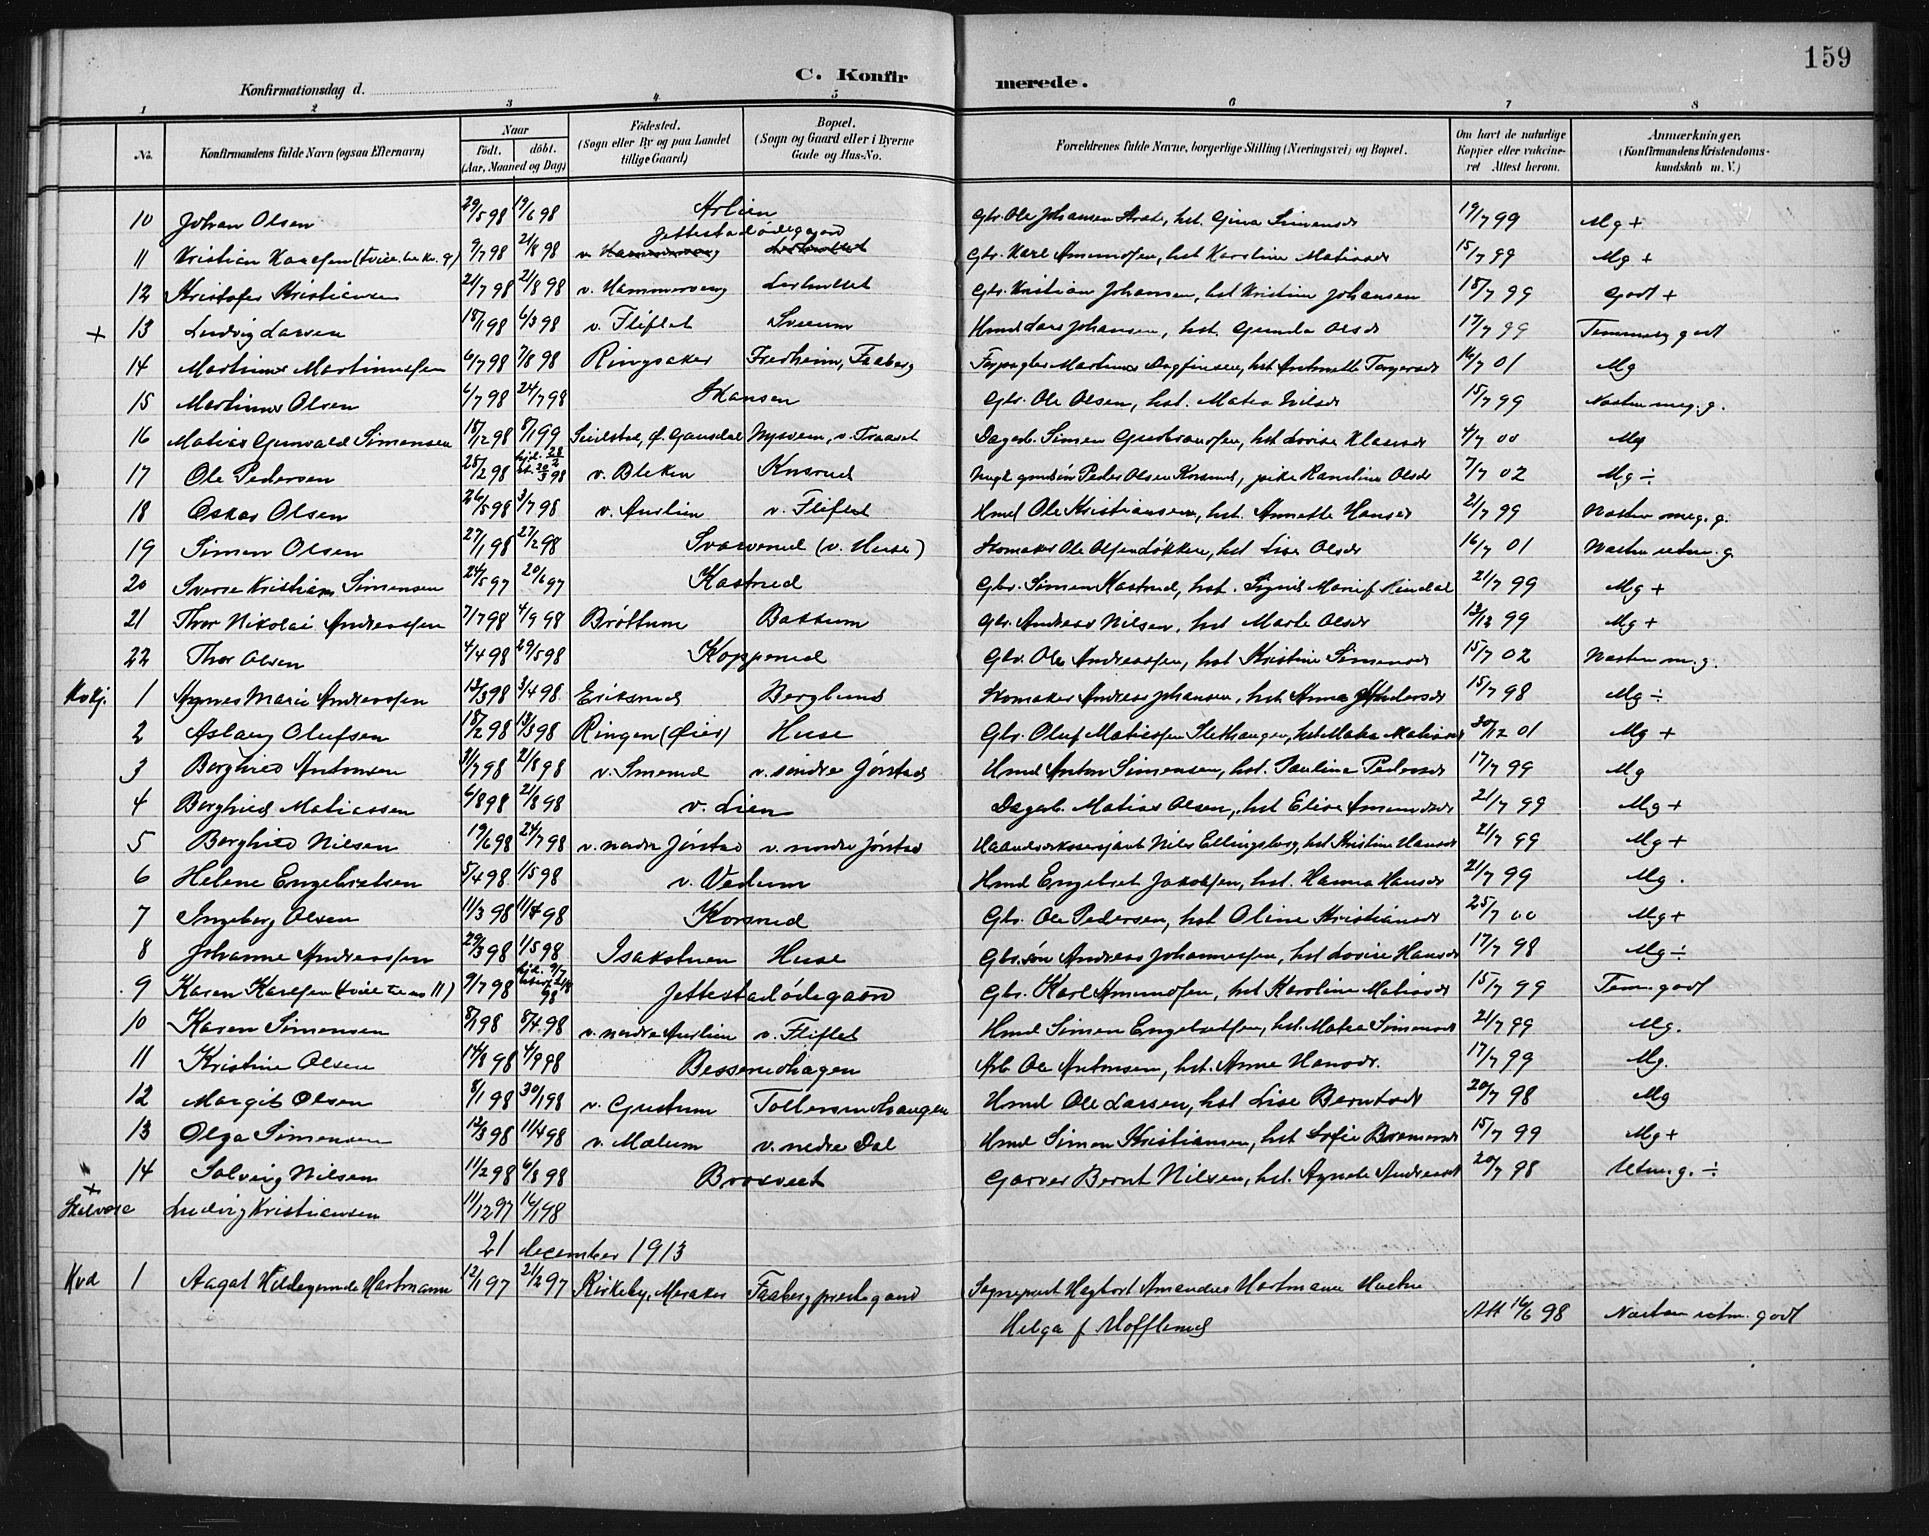 159
C. Konfirmerede.
Konfirmationsdag d.
1 2 3 4 5 6 7 8
No. Konfirmandens fulde Navn (ogsaa Efternavn) Naar født. døbt. (Aar, Maaned og Dag) Fødested. (Sogn eller By og paa Landet tillige Gaard) Bopæl. (Sogn og Gaard eller i Byerne Gade og Hus-No. Forældrenes fulde Navne, borgerlige Stilling (Næringsvei) og Bopæl. Om havt de naturlige Kopper eller vakcineret Attest herom. Anmærkninger. (Konfirmandens Kristendomskundskab m. V.)
10 Johan Olsen 29/5 98 19/6 98 Gbr. Ole Johansen hst. Gina Simensdr 19/7 99 Mg +
Jettestadødegaard
11 Kristian Karlsen 9/7 98 21/8 98 v. Hammerveng Lerhullet Gbr. Karl Amundsen, hst Karoline Matiasdr 15/7 99 Mg +
12 Kristofer Kristiansen 21/7 98 21/8 98 v. Hammerveng Lerhullet Gbr. Kristian Johansen, hst Kristine Johansen 15/7 99 Godt +
+ 13 Ludvig Larsen 18/1 98 6/3 98 v. Fliflet Sveum Hmd Lars Johansen, hst. Gunda Olsdr 17/7 99 Temmelig godt
14 Martinus Martinussen 6/7 98 7/8 98 Ringsaker Fredheim, Faaberg Forpagter Martinus Dagfinsen, hst Antonette Torgersdr 16/7 01 Mg
15 Martinus Olsen 6/7 98 24/7 98 Skansen Gbr. Ole Olsen, hst. Matea Nilsdr 15/7 99 Næsten meg. g.
16 Matias Gunvald Simensen 18/12 98 8/1 99 Ø. Gausdal Nysveen, v. Traaset Dagarb. Simen Gudbrandsen, hst Lovise Klausdr 4/7 00 Mg
17 Ole Pedersen 25/2 98 hjd. 28/2 st. 20/3 98 v. Bleken Korsrud Ungk gmdsøn Peder Olsen Korsrud, pike Karoline Olsdr 7/7 02 Mg ÷
18 Oskar Olsen 26/5 98 3/7 98 v. Aurlien v. Fliflet Hmd Ole Kristiansen, hst. Annette Hansdr 21/7 99 Næsten meg. g.
19 Simen Olsen 27/1 98 27/2 98 Svarverud (v. Huse) Skomaker Ole Olsen Løkken, hst Lise Olsdr 16/7 01 Næsten utm. g.
20 Sverre Kristian Simensen 24/5 97 20/6 97 Kastrud Gbr. Simen Kastrud, hst. Sigrid Marie f Rindal 21/7 99 Mg +
21 Thor Nikolai Andreassen 7/7 98 4/9 98 Brøttum Bassum Gbr. Andreas Nilsen, hst Marte Olsdr 13/12 99 Mg +
22 Thor Olsen 4/4 98 29/5 98 Kopperud Gbr. Ole Andreassen, hst Kristine Simensdr 15/7 02 Næsten m. g.
1 Agnes Marie Andreassen 13/3 98 3/4 98 Eriksrud Berglund Skomaker Andreas Johansen, hst Anna Andersdr 15/7 98 Mg ÷
2 Aslaug Olufsen 18/2 98 13/3 98 Ringen (Øier) Huse Gbr. Oluf Matiassen Slethaugen, hst Matea Matiasdr 30/12 01 Mg +
3 Borghild Antonsen 31/7 98 21/8 98 v. Smerud v. søndre Jørstad Hmd Anton Simensen, hst. Pauline Pedersdr 17/7 99 Mg
4 Borghild Matiassen 6/8 98 21/8 98 v. Lien Dagarb. Matias Olsen, hst Elise Amundsdr 21/7 99 Mg +
5 Borghild Nilsen 19/6 98 24/7 98 v. nordre Jørstad v. nordre Jørstad Haandverkssersjant Nils Ellingsberg, hst Kristine Hansdr 21/7 99 Mg +
6 Helene Engebretsen 5/4 98 1/5 98 v. Vedum Hmd Engebret Jakobsen, hst. Hanna Hansdr 21/7 99 Mg.
7 Ingeborg Olsen 11/3 98 11/4 98 Korsrud Gbr. Ole Pedersen, hst Oline Kristiansdr 25/7 00 Mg +
8 Johanne Andreassen 29/3 98 1/5 98 Isakstuen Huse Gbr.søn Andreas Johannessen, hst Lovise Hansdr 17/7 98 Mg ÷
9 Karen Karlsen 9/7 98 hjd. 9/7 21/8 98 Jettestadødegaard Gbr. Karl Amundsen, hst Karoline Matiasdr 15/7 99 Tem. godt
10 Karen Simensen 8/1 98 8/4 98 v. nedre Aurlien v. Fliflet Hmd Simen Engebretsen, hst. Matea Simensdr 21/7 99 Mg.
11 Kristine Olsen 14/8 98 4/9 98 Besserudhagen Arb Ole Antonsen, hst. Anne Hansdr. 17/7 99 Mg.
12 Margit Olsen 8/1 98 30/1 98 v. Gustum Tollersrudhaugen Hmd Ole Larsen, hst Lise Berntsdr 20/7 98 Mg
13 Olga Simensen 12/3 98 11/4 98 v. Mælum v. nedre Dal Hmd Simen Kristiansen, hst Sofie 15/7 99 Mg +
14 Solveig Nilsen 11/2 98 6/3 98 Brosveet Garver Bernt Nilsen, hst. Agnete Andreasdr 20/7 98 Utm. g. ÷
+ Ludvig Kristiansen 11/12 97 16/1 98
21 december 1913
Kvd 1 Aagot Hildegunde Hartmann 12/1 97 21/2 97 Kirkeby, Meraker Faaberg prestegaard Sogneprest Hagbart Amandus Hartmann Hustru
Helga f Hofflund Att 16/6 98 Næsten utm. godt